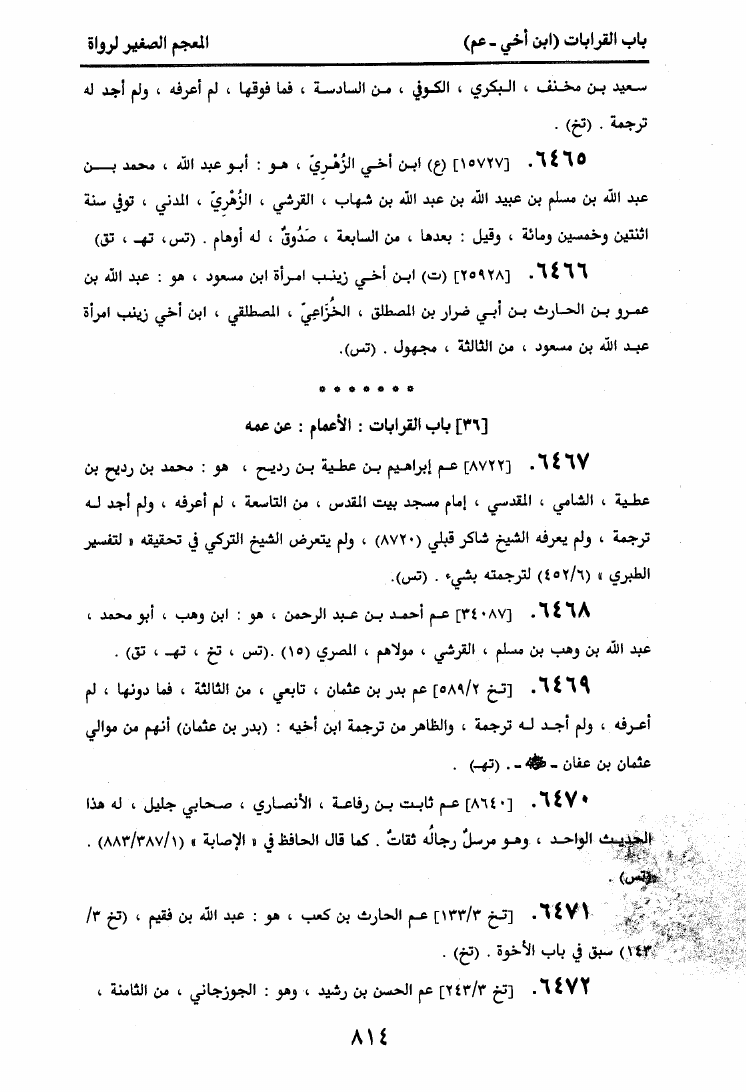 باب القرابات (ابن أخي ـ عم)
المعجم الصغير لرواة
سعيد بن مخنف ، البكري ، الكوفي ، من السادسة ، فما فوقها ، لم أعرفه ، ولم أجد له
ترجمة . (تخ) .
٦٤٦٥. [١٥٧٢٧] (ع) ابن أخي الزُهْريّ ، هو : أبو عبد الله ، محمد بن
عبد الله بن مسلم بن عبيد الله بن عبد الله بن شهاب ، القرشي ، الزُهْريّ ، المدني ، توفي سنة
اثنتين وخمسين ومائة ، وقيل : بعدها ، من السابعة ، صَدُوقٌ ، له أوهام . (تس، تهـ ، تق)
٦٤٦٦. [٢٥٩٢٨] (ت) ابن أخي زينب امرأة ابن مسعود ، هو : عبد الله بن
عمرو بن الحارث بن أبي ضرار بن المصطلق ، الخُزَاعِيّ ، المصطلقي ، ابن أخي زينب امرأة
عبد الله بن مسعود ، من الثالثة ، مجهول . (تس).
* * * * * * *
[٣٦] باب القرابات : الأعمام : عن عمه
٦٤٦٧. [٨٧٢٢] عم إبراهيم بن عطية بن رديح ، هو : محمد بن رديح بن
عطية ، الشامي ، المقدسي ، إمام مسجد بيت المقدس ، من التاسعة ، لم أعرفه ، ولم أجد له
ترجمة ، ولم يعرفه الشيخ شاكر قبلي (٨٧٢٠) ، ولم يتعرض الشيخ التركي في تحقيقه « لتفسير
الطبري » (٤٥٢/٦) لترجمته بشيء . (تس).
٦٤٦٨. [٣٤٠٨٧] عم أحمد بن عبد الرحمن ، هو : ابن وهب ، أبو محمد ،
عبد الله بن وهب بن مسلم ، القرشي ، مولاهم ، المصري (١٥) .(تس ، تخ ، تهـ ، تق) .
٦٤٦٩. [تخ ٥٨٩/٢] عم بدر بن عثمان ، تابعي ، من الثالثة ، فما دونها ، لم
أعرفه ، ولم أجد له ترجمة ، والظاهر من ترجمة ابن أخيه : (بدر بن عثمان) أنهم من موالي
عثمان بن عفان ـ ـ . (تهـ) .
٦٤٧٠. [٨٦٤٠] عم ثابت بن رفاعة ، الأنصاري ، صحابي جليل ، له هذا
الحديث الواحد ، وهو مرسلٌ رجالُه ثقاتٌ . كما قال الحافظ في « الإصابة » (٨٨٣/٣٨٧/١) .
(تس) .
٦٤٧١. [تخ ١٣٣/٣] عم الحارث بن كعب ، هو : عبد الله بن فقيم ، (تخ ٣/
١٤٣) سبق في باب الأخوة . (تخ) .
٦٤٧٢. [تخ ٢٤٣/٣] عم الحسن بن رشيد ، وهو : الجوزجاني ، من الثامنة ،
٨١٤